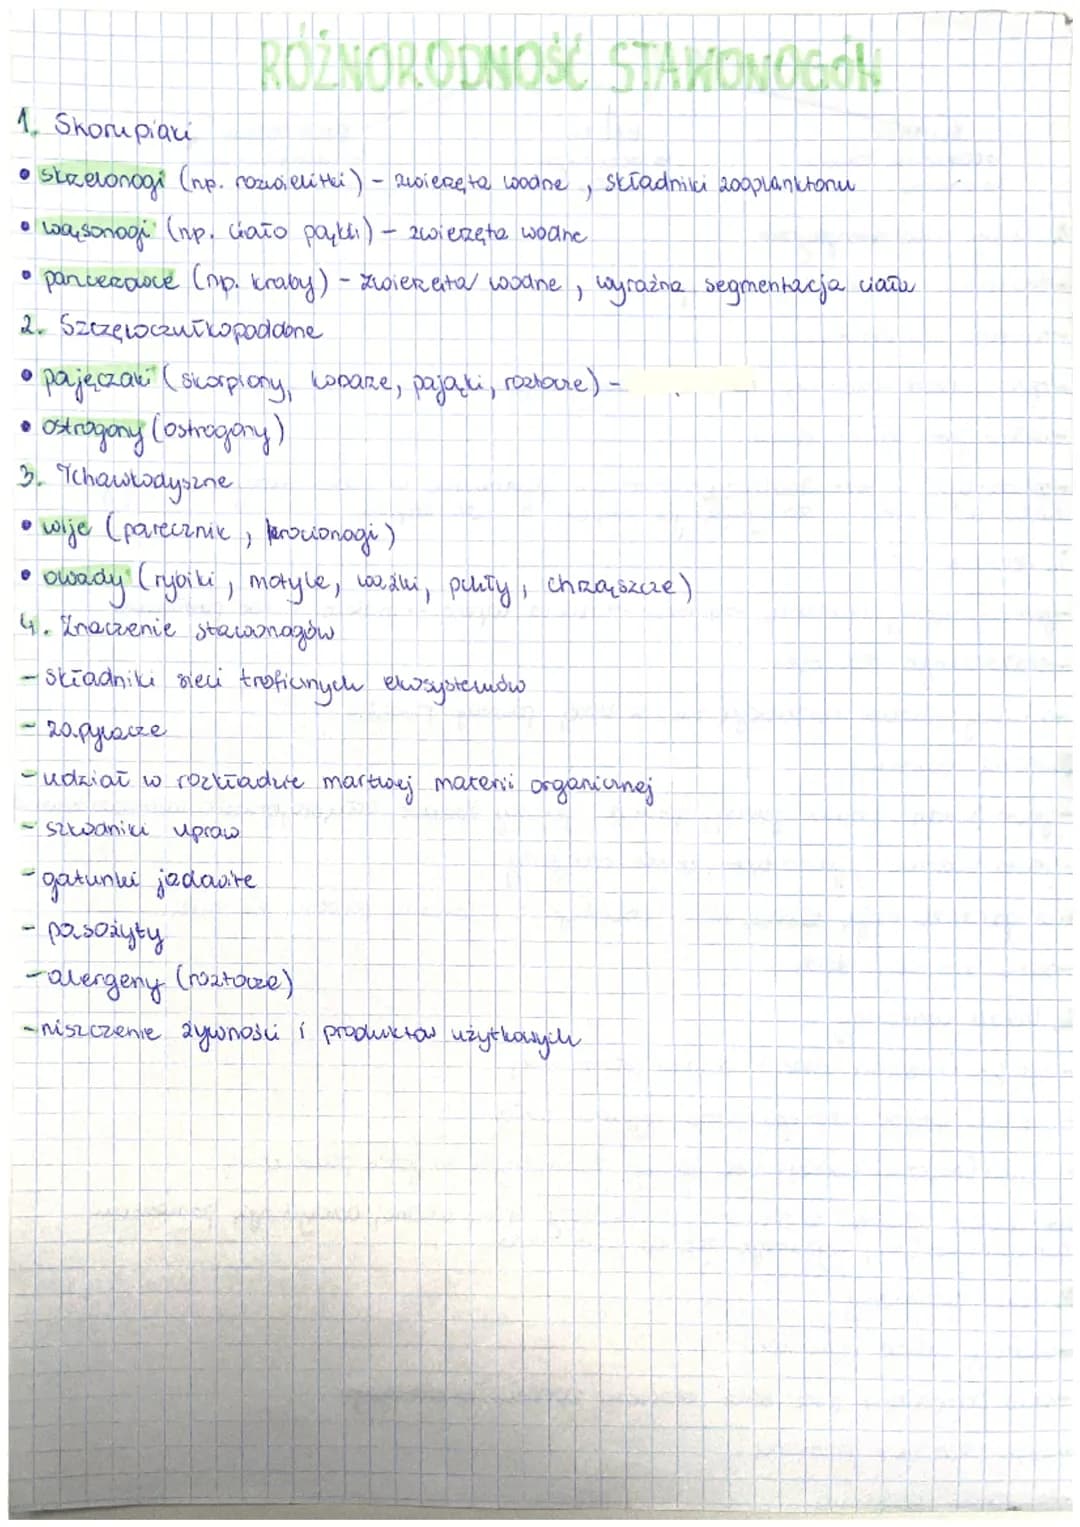 RÓŻNORODNOŚĆ STAWONOGÓW
1. Skorupiaki
• skrzelonogi (np. rozwielitki) - zwierzęta wodne, składniki zooplanktonu
• wąsonogi (np. ciało pąkli) - zwierzęta wodne
• pancerzowce (np. kraby) - zwierzęta wodne, wyraźna segmentacja ciała
2. Szczękoczułkopoddone
• pajęczaki (skorpiony, kosarze, pająki, roztocze) -
• ostrogony (ostrogony)
3. Tchawkodyszne
• wije (parecznik, krocionogi)
• owady (rybiki, motyle, ważki, pchły, chrząszcze)
4. Znaczenie stawonogów
- składniki sieci troficznych ekosystemów
- zapylacze
- udział w rozkładzie martwej materii organicznej
- szkodniki upraw
- gatunki jadowite
- pasożyty
- alergeny (roztocze)
- niszczenie żywności i produktów użytkowych